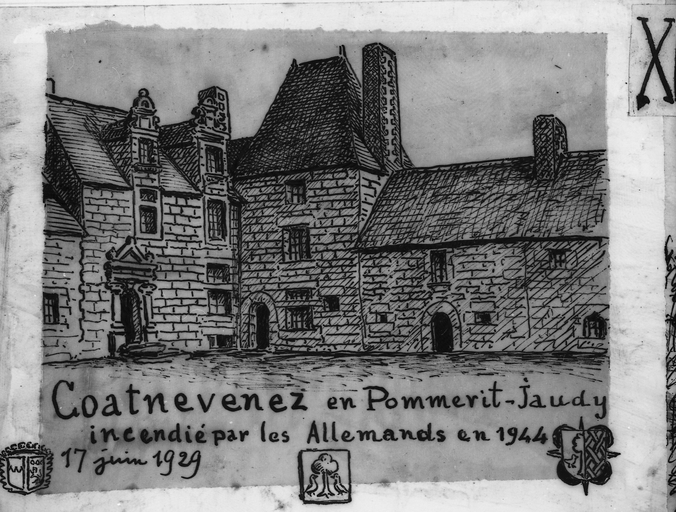 X
Coatnevenez en Pommerit-Jaudy
incendié par les Allemands en 1944
17 juin 1929